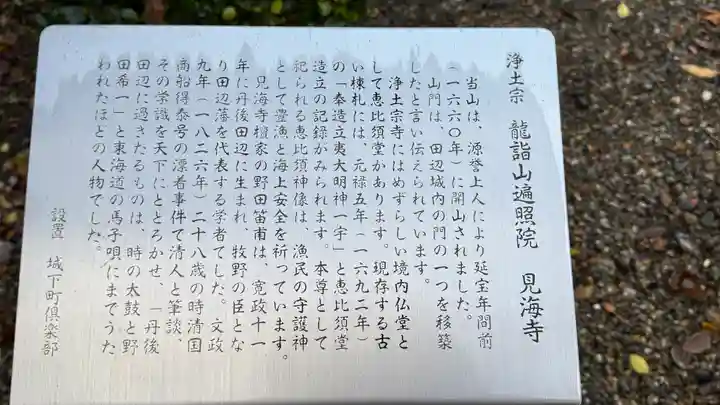 浄土宗 龍詣山遍照院 見海寺
当山は、源誉上人により延宝年間前
(一六六〇年)に開山されました。
山門は、田辺城内の門の一つを移築
したと言い伝えられています。
浄土宗寺にはめずらしい境内仏堂と
して恵比須堂かあります。現存する古
い棟札には、元禄五年(一六九二年)
の「奉造立夷大明神一宇」と恵比須堂
造立の記録がみられます。本尊として
祀られる恵比須神像は、漁民の守護神
として豊漁と海上安全を祈っています。
見海寺檀家の野田笛甫は、寛政十一
年に丹後田辺に生まれ、牧野の臣とな
り田辺藩を代表する学者でした。文政
九年(一八二六年)二十八歳の時清国
商船得泰号の漂着事件で清人と筆談、
その学識を天下にととろかせ、「丹後
田辺に過きたるものは、時の太鼓と野
田希一」と東海道の馬子唄にまでうた
われたほとの人物でした。
設置 城下町倶楽部